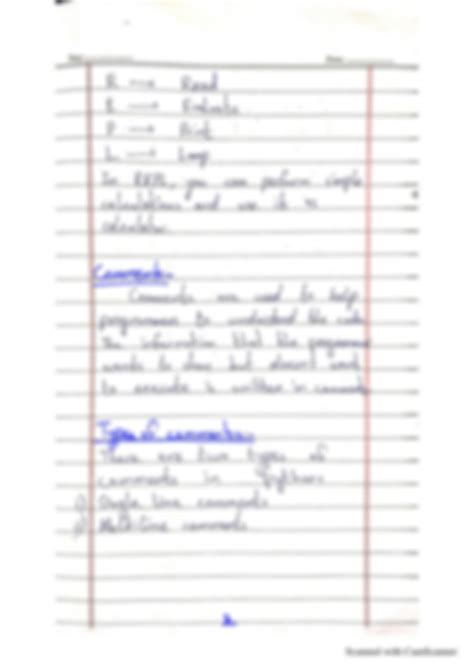 R → Read
E → Evaluate
P → Print
L → Loop
In REPL, you can perform simple
calculations and use it as
calculator.
Comments:-
Comments are used to help
programmers to understand the code.
The information that the programmer
wants to show but doesn't want
to execute is written in comments.
Types of comments:-
There are two types of
comments in Python
1) Single line comments
2) Multi-line comments
2
Scanned with CamScanner